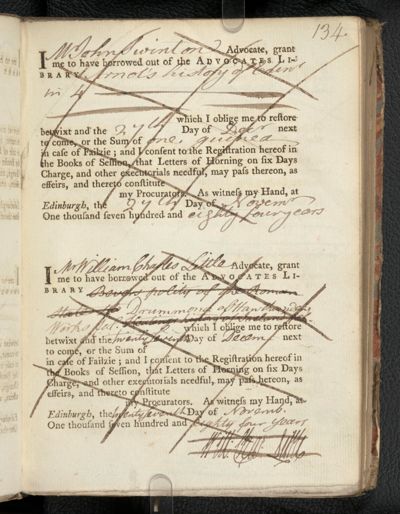 134.
I Mr John Swinton Advocate, grant
me to have borrowed out of the ADVOCATES LI-
BRARY Arnot's history of Edinr
in 4
which I oblige me to restore
betwixt and the 27th Day of Decr next
to come, or the Sum of one guinea
in case of Failzie; and I consent to the Registration hereof in
the Books of Session, that Letters of Horning on six Days
Charge, and other executorials needful, may pass thereon, as
effeirs, and thereto constitute
my Procurators. As witness my Hand, at
Edinburgh, the 27th Day of Novemr
One thousand seven hundred and eighty four years
I Mr William Charles Little Advocate, grant
me to have borrowed out of the ADVOCATES LI-
BRARY polity of the Roman
State Drummond of Hawthornden's
Works fol.
which I oblige me to restore
betwixt and the twenty seventh Day of Decem. next
to come, or the Sum of
in case of Failzie; and I consent to the Registration hereof in
the Books of Session, that Letters of Horning on six Days
Charge, and other executorials needful, may pass hereon, as
effeirs, and thereto constitute
my Procurators. As witness my Hand, at
Edinburgh, the twenty seventh Day of Novemb.
One thousand seven hundred and eighty four years
Will: Char: Little